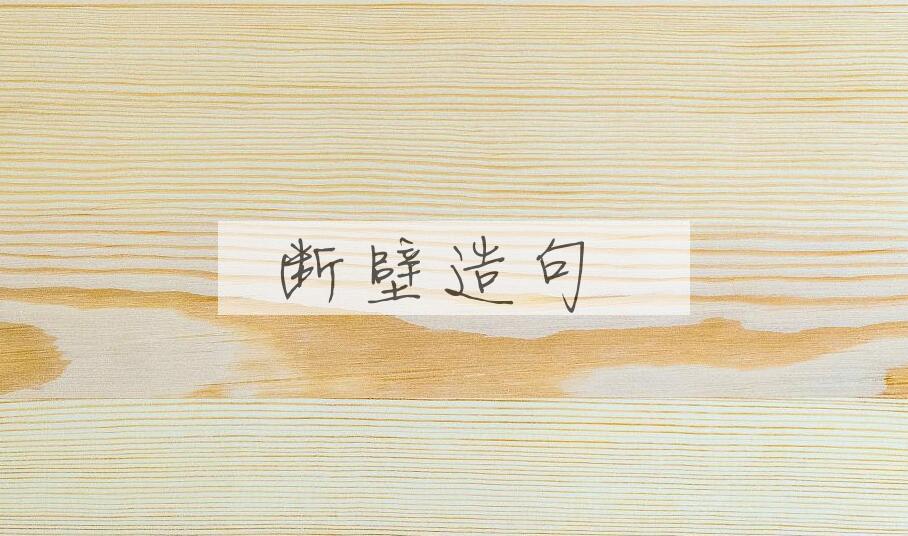 断壁造句